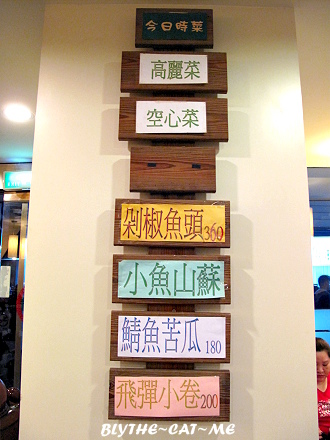 今日時菜
高麗菜
空心菜
剁椒魚頭360
小魚山蘇
鯖魚苦瓜180
飛彈小卷200
BLYTHE~CAT~ME